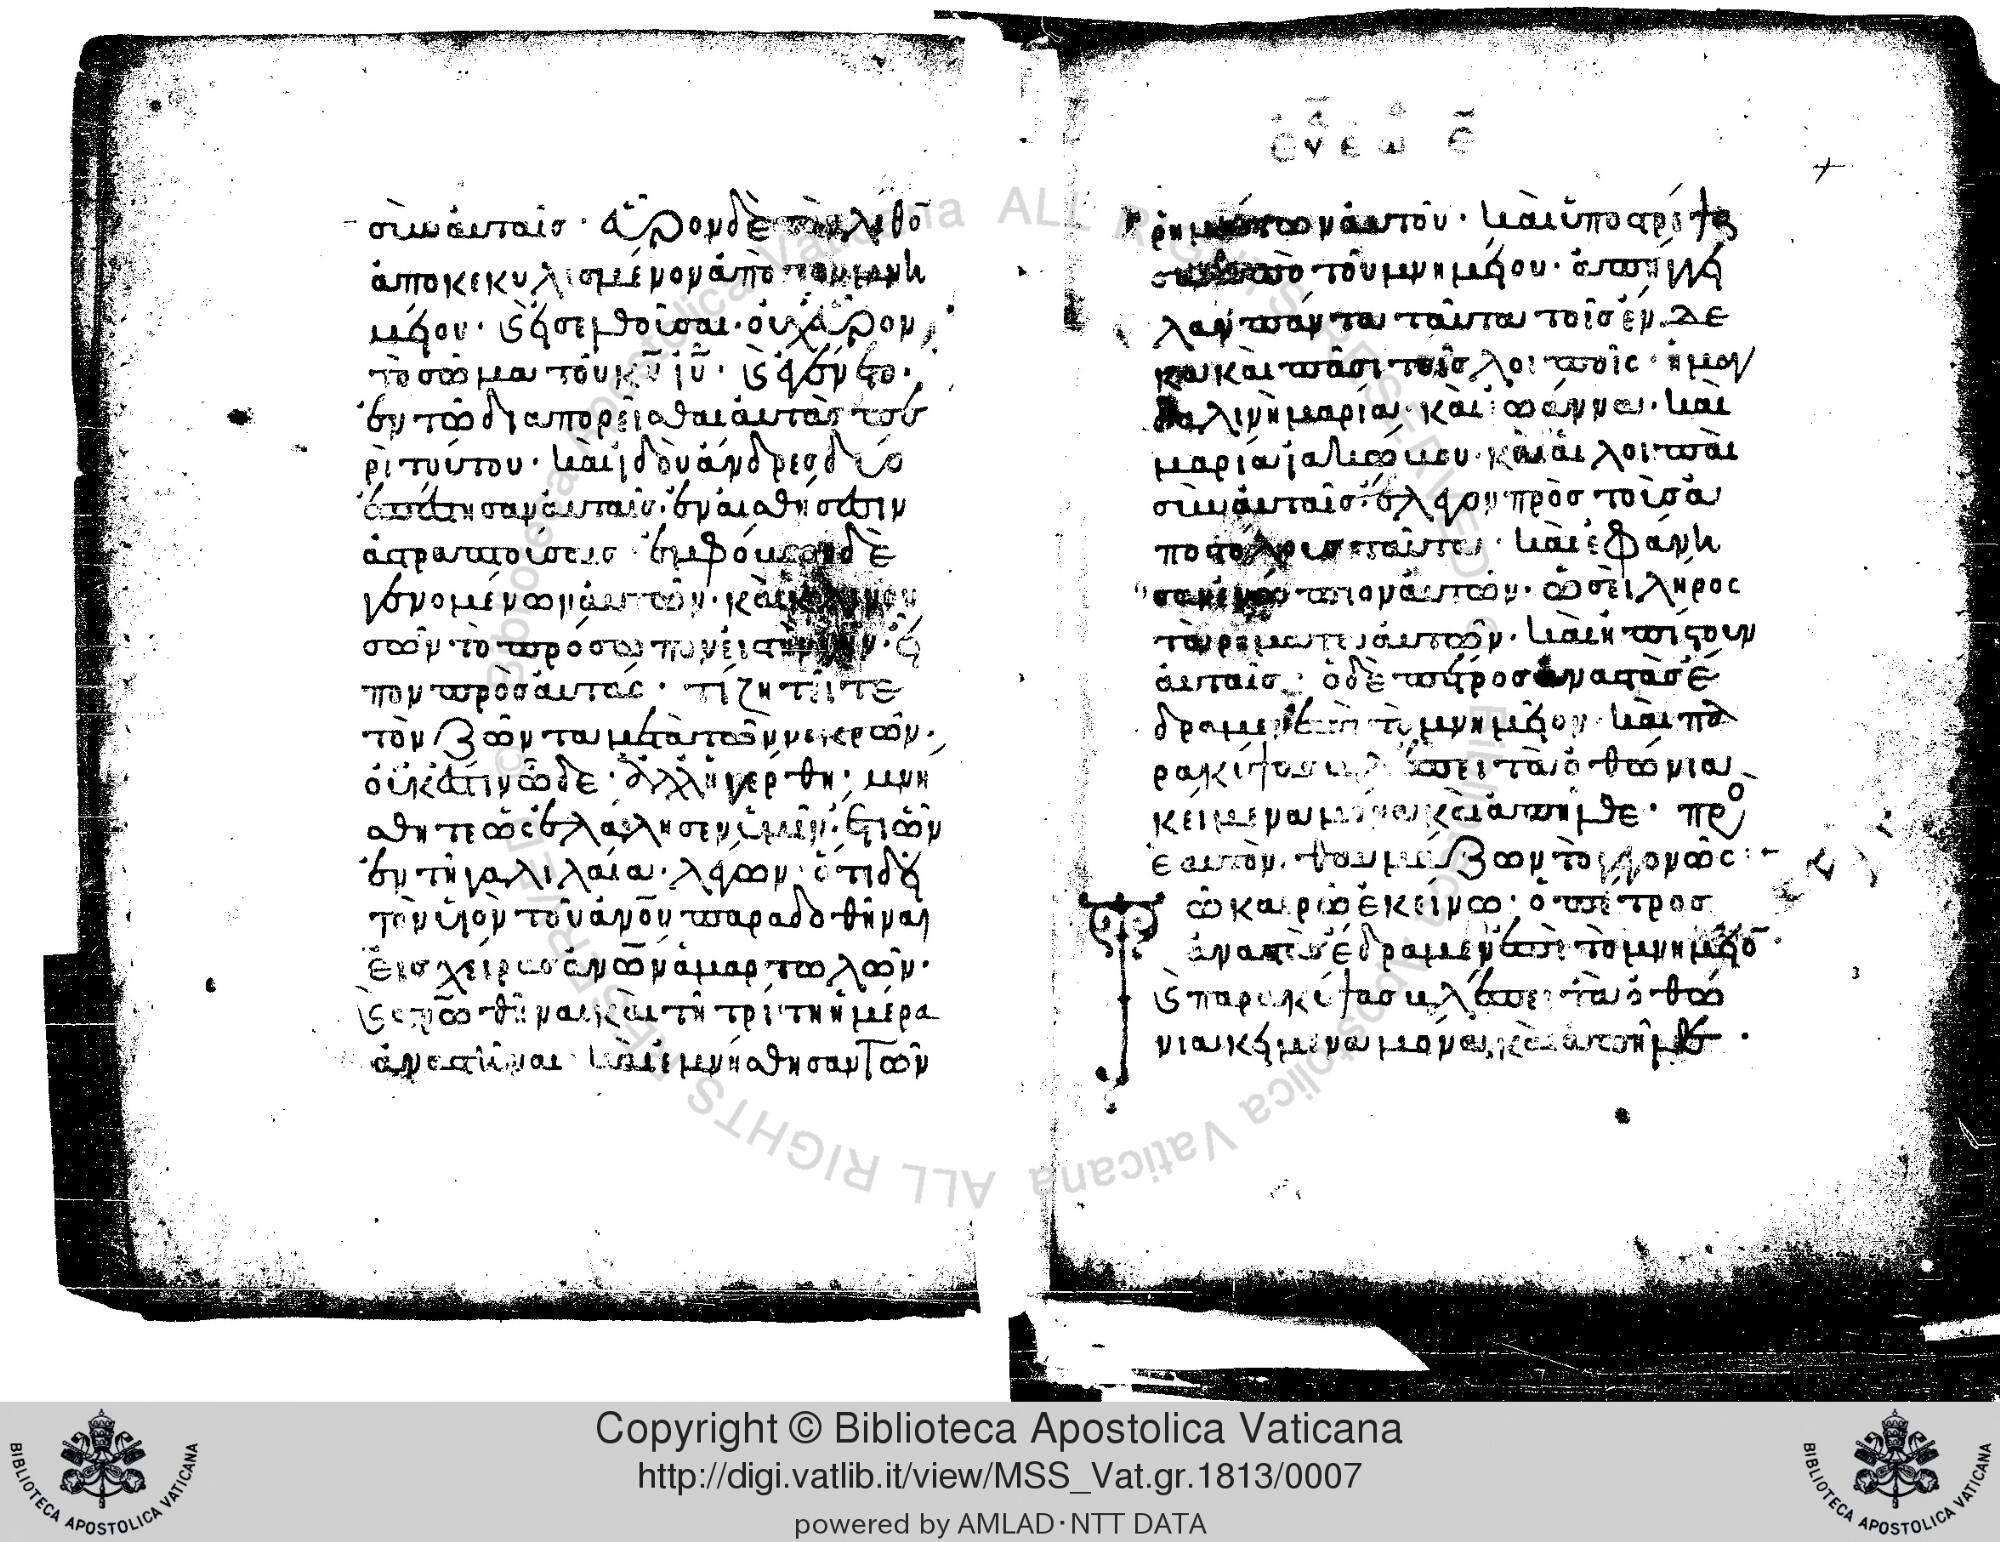 σὺν αὐταῖς· εὗρον δὲ τὸν λίθον
ἀποκεκυλισμένον ἀπὸ τοῦ μνη
μείου· καὶ εἰσελθοῦσαι· οὐχ εὗρον
τὸ σῶμα τοῦ κ̅υ̅ ι̅υ̅· καὶ ἐγένετο·
ἐν τῷ διαπορεῖσθαι αὐτὰς πε
ρὶ τούτου· καὶ ἰδοὺ ἄνδρες δύο
ἐπέστησαν αὐταῖς· ἐν αἰσθήσεσιν
ἀστραπτούσαις· ἐμφόβων δὲ
γενομένων αὐτῶν· καὶ κλινου
σῶν τὸ πρόσωπον εἰς τὴν γῆν· εἶ
πον πρὸς αὐτάς· τί ζητεῖτε
τὸν ζῶντα μετὰ τῶν νεκρῶν·
οὐκ ἔστιν ὧδε· ἀλλ' ἠγέρθη· μνή
σθητε ὡς ἐλάλησεν ὑμῖν· ἔτι ὢν
ἐν τῇ γαλιλαία· λέγων· ὅτι δεῖ
τὸν υἱὸν τοῦ ἀνο̅υ̅ παραδοθῆναι
εἰς χεῖρας ἀνω̅ν̅ ἁμαρτωλῶν·
καὶ στρω̅θῆναι· καὶ τῇ τρίτη ἡμέρα
ἀναστῆναι· καὶ ἐμνήσθησαν τῶν
ἑω ε̅
ρημάτων αὐτοῦ· καὶ ὑποστρέψα
σαι ἀπὸ τοῦ μνημείου· ἀπήγγει
λαν πάντα ταῦτα τοῖς ἕνδε
κα καὶ πᾶσι τοῖς λοιποῖς· ἡ μαγ
δαλινὴ μαρία· καὶ ἰωάννα· καὶ
μαρία ἰακώβου· καὶ αἱ λοιπαὶ
σὺν αὐταῖς· ἔλεγον πρὸς τοὺς ἀ
ποστόλους ταῦτα· καὶ ἐφάνη
σαν ἐνώπιον αὐτῶν· ὡσεὶ λῆρος
τὰ ρήματα αὐτῶν· καὶ ἠπίστουν
αὐταῖς· ὁ δὲ πέτρος ἀναστὰς ἔ
δραμεν ἐπὶ τὸ μνημεῖον· καὶ πα
ρακύψας βλέπει τὰ ὀθόνια
κείμενα μόνα καὶ ἀπῆλθε· πρὸ
ἑαυτὸν· θαυμάζων τὸ γεγονὼς·
Τῶ καιρῶ ἐκείνω· ὁ πέτρος
ἀναστὰς ἔδραμεν ἐπὶ τὸ μνημεῖον·
καὶ παρακύψας βλέπει τὰ ὀθό
νια κείμενα μόνα, καὶ ἀπῆλθεν·
Copyright © Biblioteca Apostolica Vaticana
http://digi.vatlib.it/view/MSS_Vat.gr.1813/0007
powered by AMLAD·NTT DATA